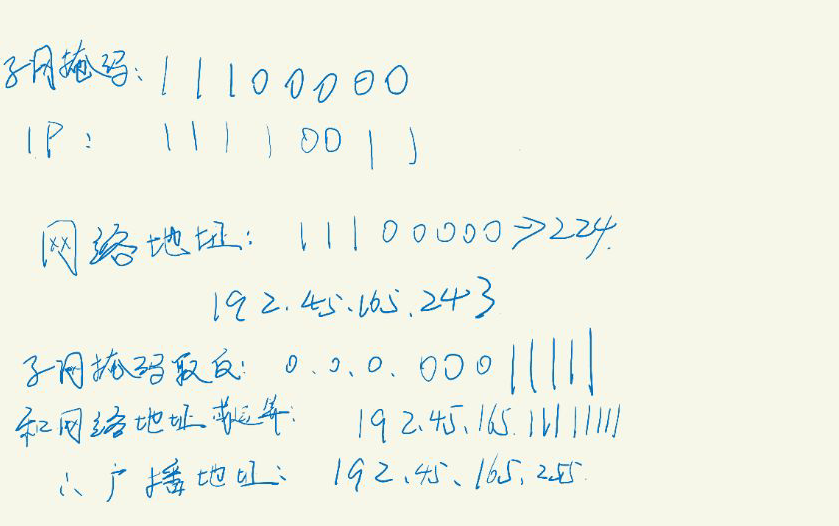 子网掩码: 11100000
IP: 11110011
网络地址: 11100000⇒224.
192.45.165.243
子网掩码取反: 0.0.0.00011111
和网络地址或运算: 192.45.165.11111111
∴广播地址: 192.45.165.255.